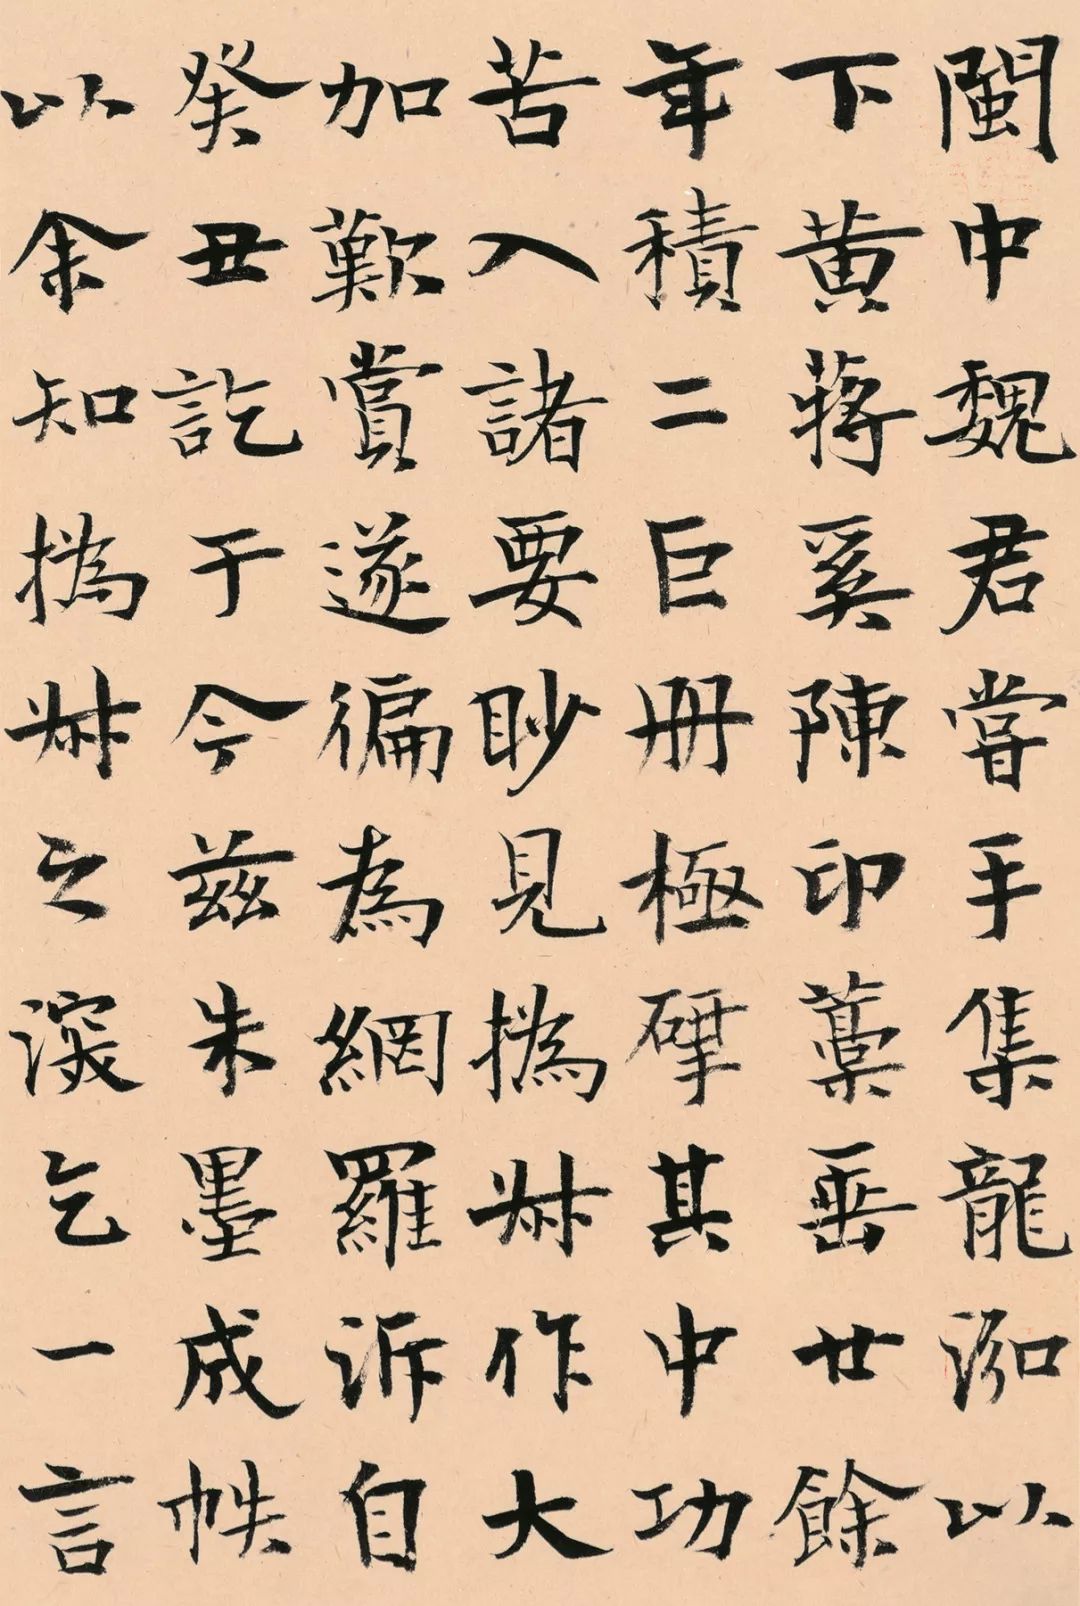 閩中魏君嘗手集龍泓以
下黄蒋奚陳印藁垂廿餘
年積二巨冊極硏其中功
苦入諸要眇見撝叔作大
加歎賞遂徧為網羅訴自
癸丑訖于今兹朱墨成帙
以余知撝叔之深乞一言